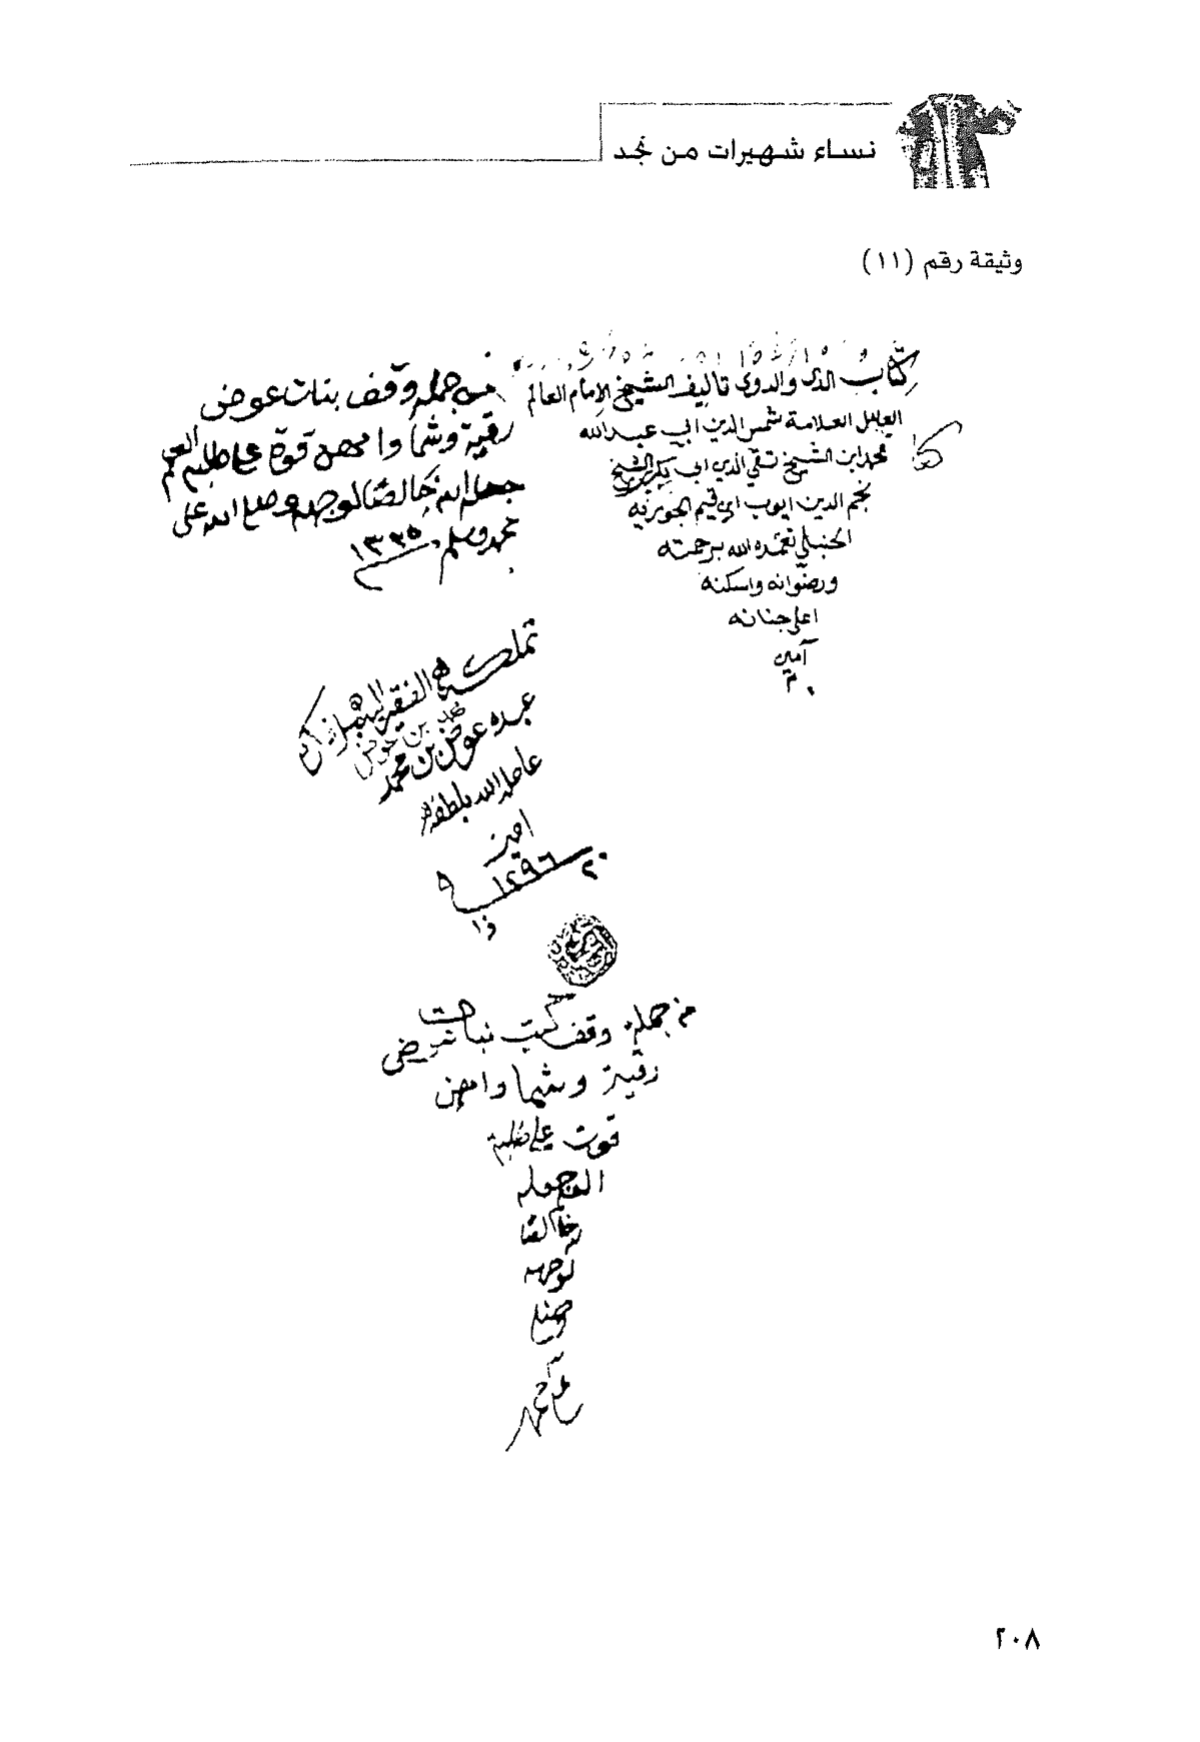 نساء شهيرات من نجد
وثيقة رقم (١١)
كتاب الداء والدوى تاليف الشيخ الإمام العالم
العامل العلامة شمس الدين ابي عبد الله
محمد ابن الشيخ تقي الدين ابي بكر بن الشيخ
نجم الدين ايوب ابن قيم الجوزيه
الحنبلي تغمده الله برحمته
ورضوانه واسكنه
اعلى جنانه
آمين
من جملة وقف بنات عوض
رقية وشما وامهن قوة على طلبة العلم
جعله الله خالصا لوجهه وصلى الله على
محمد وسلم ١٣٢٥
تملك هذا الفقير
عبده عوض بن محمد
عامله الله بلطفه
امين
١٢٩٦
من جملة وقف كتب بنات عوض
رقية وشما وامهن
قوت على طلبة
العلم جعله
خالصا
لوجهه
وصلى
على محمد
٢٠٨